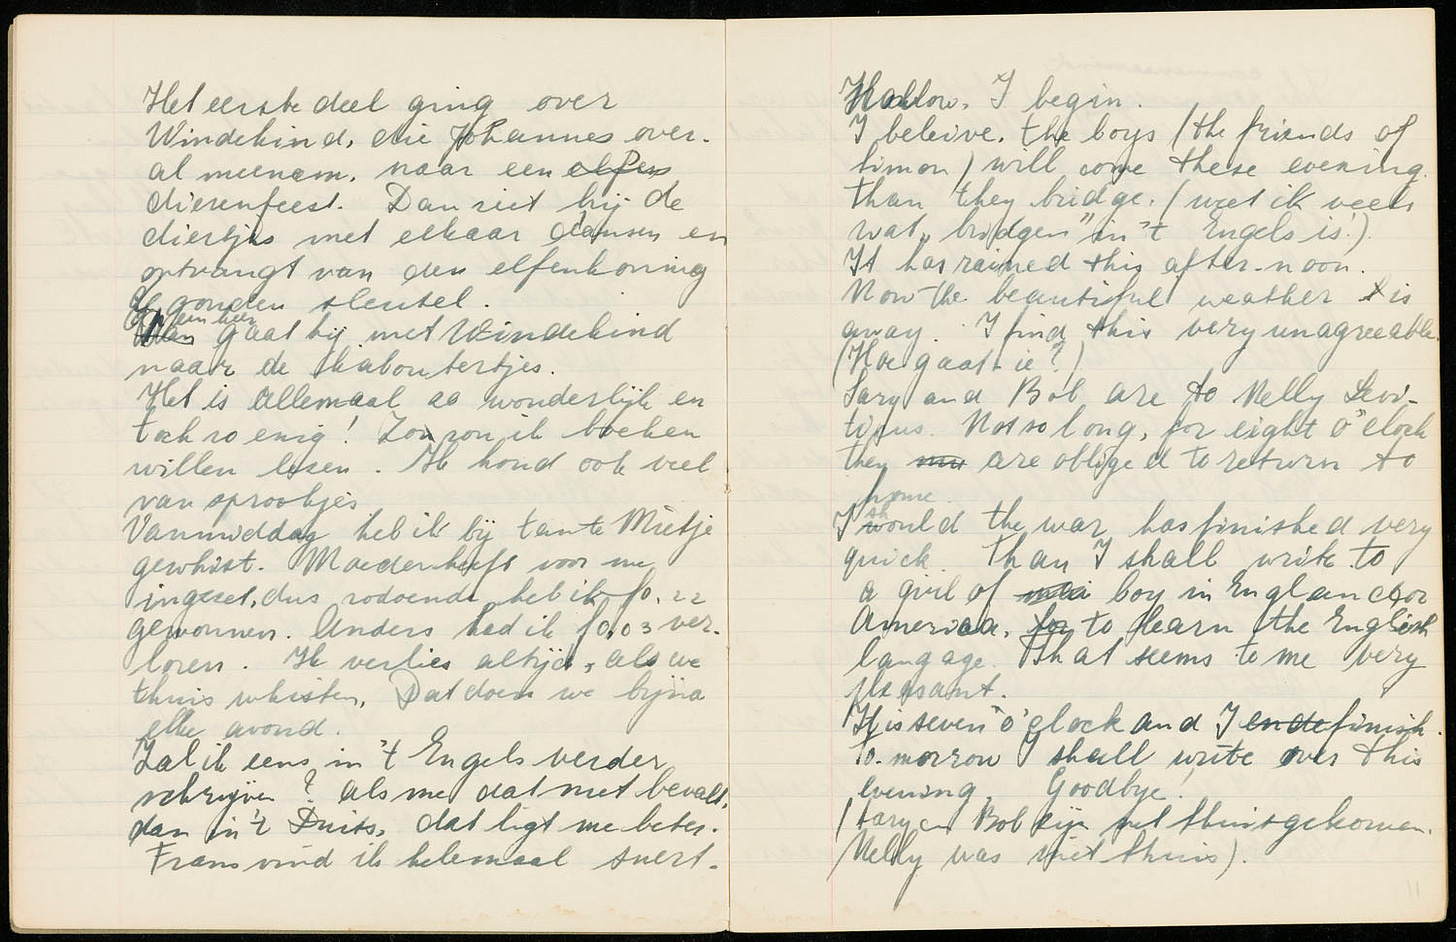 Het eerste deel ging over
Windekind, die Johannes over-
al meenam, naar een elfen
dierenfeest. Dan ziet hij de
diertjes met elkaar dansen en
ontvangt van den elfenkoning
'n gouden sleutel.
Op een keer gaat hij met Windekind
naar de kaboutertjes.
Het is allemaal zo wonderlijk en
toch zo enig! Zou zou ik boeken
willen lezen. Ik houd ook veel
van sprookjes
Vanmiddag heb ik bij tante Mietje
gewhist. Moeder heeft voor me
ingezet, dus zodoende heb ik f0.22
gewonnen. Anders had ik f0,03 ver-
loren. Ik verlies altijd, als we
thuis whisten, Dat doen we bijna
elke avond.
Zal ik eens in 't Engels verder
schrijven? Als me dat niet bevalt,
dan in 't Duits, dat ligt me beter.
Frans vind ik helemaal snert.
Hallow. I begin.
I beleive. the boys (the friends of
Simon) will come these evening.
than they bridge. (weet ik veel
wat „bridgen” in 't Engels is!)
It has rained this after-noon.
Now the beautiful weather is
away. I find this very unagreeable.
(Hoe gaat ie?)
Sary and Bob are to Nelly Levi-
ticus. Not so long, for eight o'clock
they are obliged to return to
home.
I should the war has finished very
quick. Than I shall write to
a girl of boy in England or
America, for to learn the English
langage. That seems to me very
pleasant.
It is seven o'clock and I ende finish.
To-morrow I shall write over this
evening. Goodbye!
(Sary en Bob zijn net thuisgekomen.
Nelly was niet thuis).
11